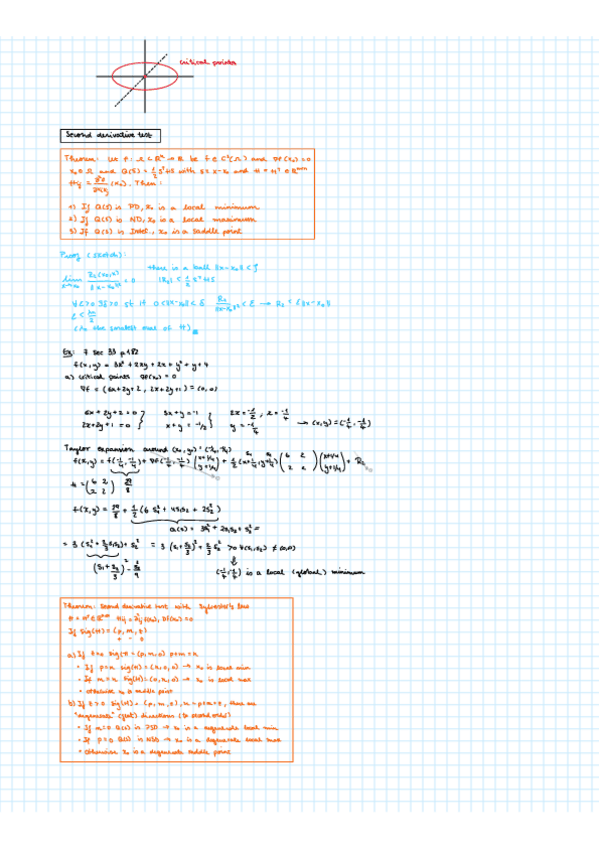 critical points
Second derivative test
Theorem: Let f: Ω ⊂ ℝⁿ → ℝ be f ∈ C²(Ω) and ∇f(x₀) = 0
x₀ ∈ Ω and Q(S) = 1/2 SᵀHS with S = x-x₀ and H = Hᵀ ∈ ℝⁿˣⁿ
(x₀). Then:
1) If Q(S) is PD, x₀ is a local minimum
2) If Q(S) is ND, x₀ is a local maximum
3) If Q(S) is Indef., x₀ is a saddle point
Proof (sketch):
there is a ball
(λ₀ the smallest one of H)
Ex: 7 sec 33 p 182
f(x,y) = 3x² + 2xy + 2x + y² + y + 4
a) critical points ∇f(x₀) = 0
∇f = (6x+2y+2, 2x+2y+1) = (0,0)
6x + 2y + 2 = 0 } 3x + y = -1 } 2x = -1/2, x = -1/4
2x + 2y + 1 = 0 } x + y = -1/2 } y = -1/4 → (x,y) = (-1/4, -1/4)
Taylor expansion around (x₀, y₀) = (-1/4, -1/4)
f(x,y) = f(-1/4, -1/4) + ∇f(-1/4, -1/4) (x+1/4 y+1/4) + 1/2 (x+1/4, y+1/4) (6 2 2 2) (x+1/4 y+1/4) + R₂
H = (6 2 2 2) 29/8
f(x,y) = 29/8 + 1/2 (6 s₁² + 4s₁s₂ + 2s₂²)
Q(s) = 3s₁² + 2s₁s₂ + s₂² =
= 3 (s₁² + 2/3 s₁s₂) + s₂² = 3 (s₁ + s₂/3)² + 2/3 s₂² > 0 ∀(s₁,s₂) ≠ (0,0)
(s₁ + s₂/3)² - s₂²/9
(-1/4, -1/4) is a local (global) minimum
Theorem: Second derivative test with Sylvester's law
H = Hᵀ ∈ ℝⁿˣⁿ
If sig(H) = (p, m, z)
+ - 0
a) If z=0 sig(H) = (p, m, 0) p+m=n
• If p=n sig(H) = (n, 0, 0) → x₀ is local min
• If m=n sig(H) = (0, n, 0) → x₀ is local max
• otherwise x₀ a saddle point
b) If z>0 sig(H) = (p, m, z), there are
"degenerate" (flat) directions (to second order)
• If m=0 Q(S) is PSD → x₀ is a degenerate local min
• If p=0 Q(S) is NSD → x₀ is a degenerate local max
• otherwise x₀ is a degenerate saddle point